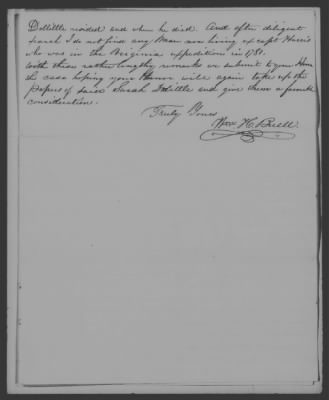 Dolittle resided and when he died. And after diligent
search I do not find any man now living except Harris
who was in the Virginia expedition in 1781.
With these rather lengthy remarks we submit to your Honor
the case hoping your Honor will again take up the
papers of said Sarah Dolittle and give them a favorable
consideration.
Truly Yours
Wm H. Buell